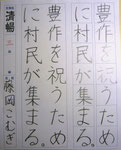 豊作を祝うため
に村民が集まる。
豊作を祝うため
に村民が集まる。
清暢
三
藤岡こむぎ